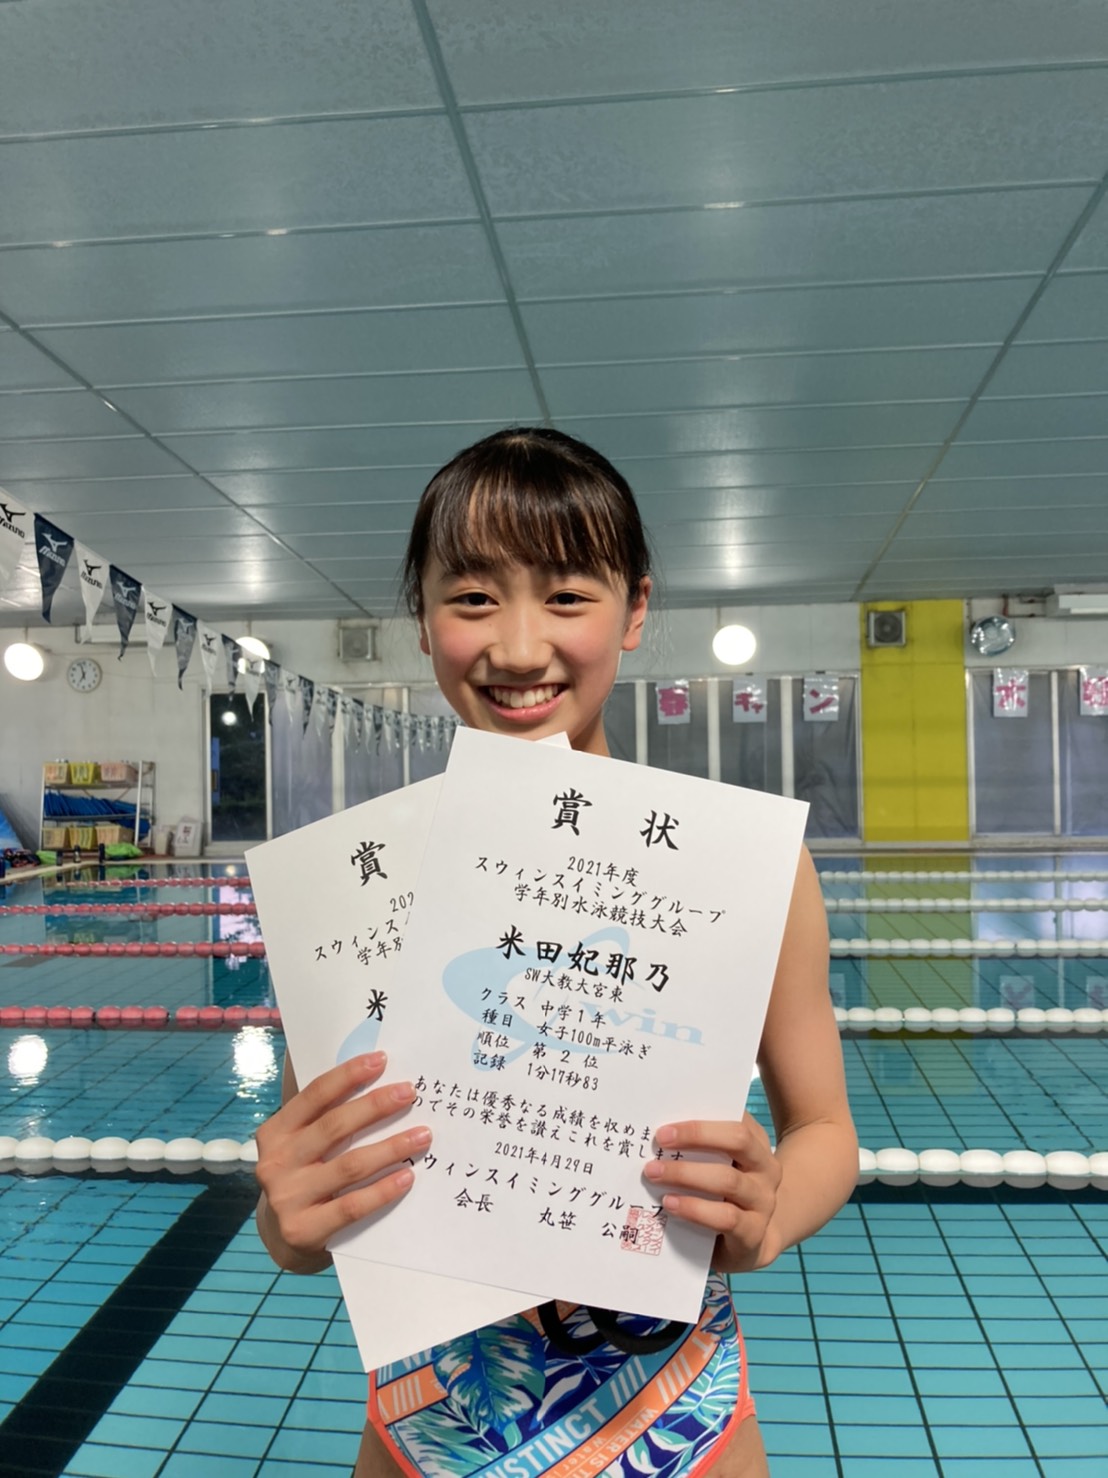 MIZUNO
MIZUNO
MIZUNO
春
キャ
ン
水
賞
202
スウィンス
学年別
米
賞 状
2021年度
スウィンスイミンググループ
学年別水泳競技大会
米田妃那乃
SW大教大宮東
クラス 中学1年
種目 女子100m平泳ぎ
順位 第 2 位
記録 1分17秒83
win
あなたは優秀なる成績を収めま
のでその栄誉を讃えこれを賞します
2021年4月29日
スウィンスイミンググループ
会長 丸笹 公嗣
INSTINCT
WATER IS T